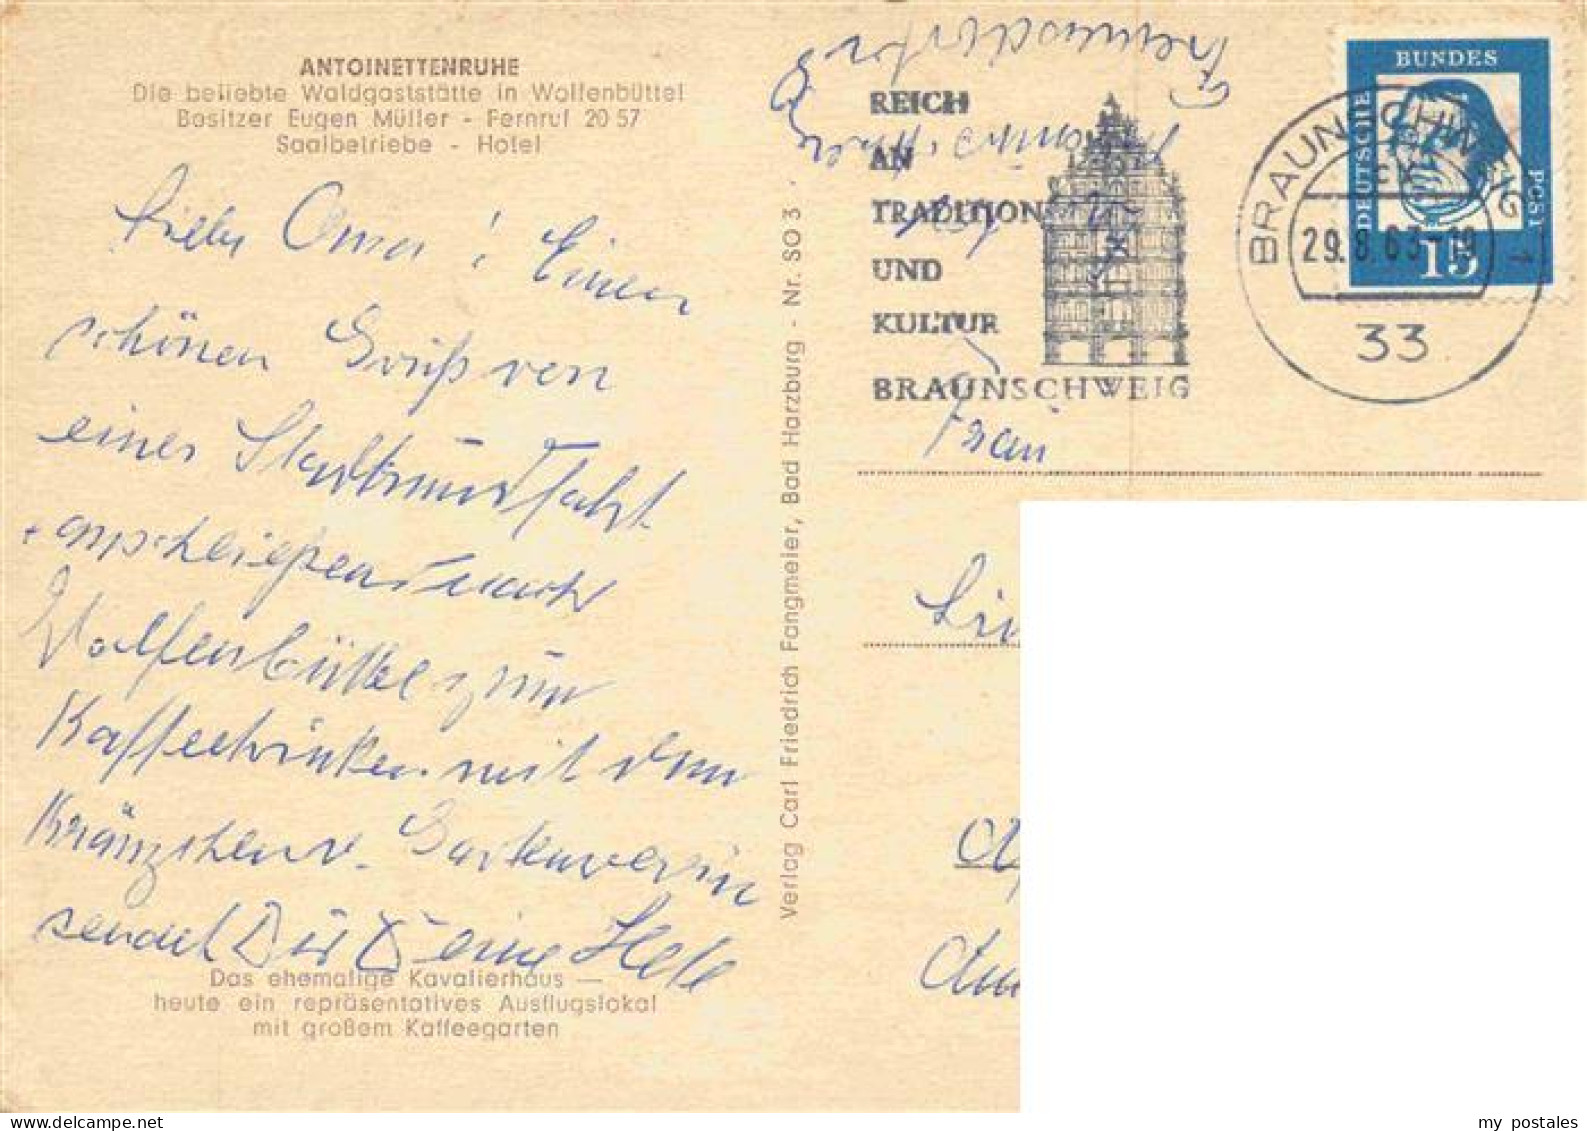 ANTOINETTENRUHE
Die beliebte Waldgaststätte in Wolfenbüttel
Besitzer Eugen Müller - Fernruf 20 57
Saalbetriebe - Hotel
Liebe Oma! Einen
schönen Gruß von
einer Stadtrundfahrt
+ anschließend nach
Wolfenbüttel zum
Kaffeetrinken mit dem
Kränzchen v. Gartenverein
sendet Dir Deine Hele
Das ehemalige Kavalierhaus —
heute ein repräsentatives Ausflugslokal
mit großem Kaffeegarten
Verlag Carl Friedrich Fangmeier, Bad Harzburg - Nr. SO 3
REICH
AN
TRADITION
UND
KULTUR
BRAUNSCHWEIG
BRAUNSCHWEIG 1
29.8.63-19
33
DEUTSCHE
BUNDES
POST
15
Frau
my postales